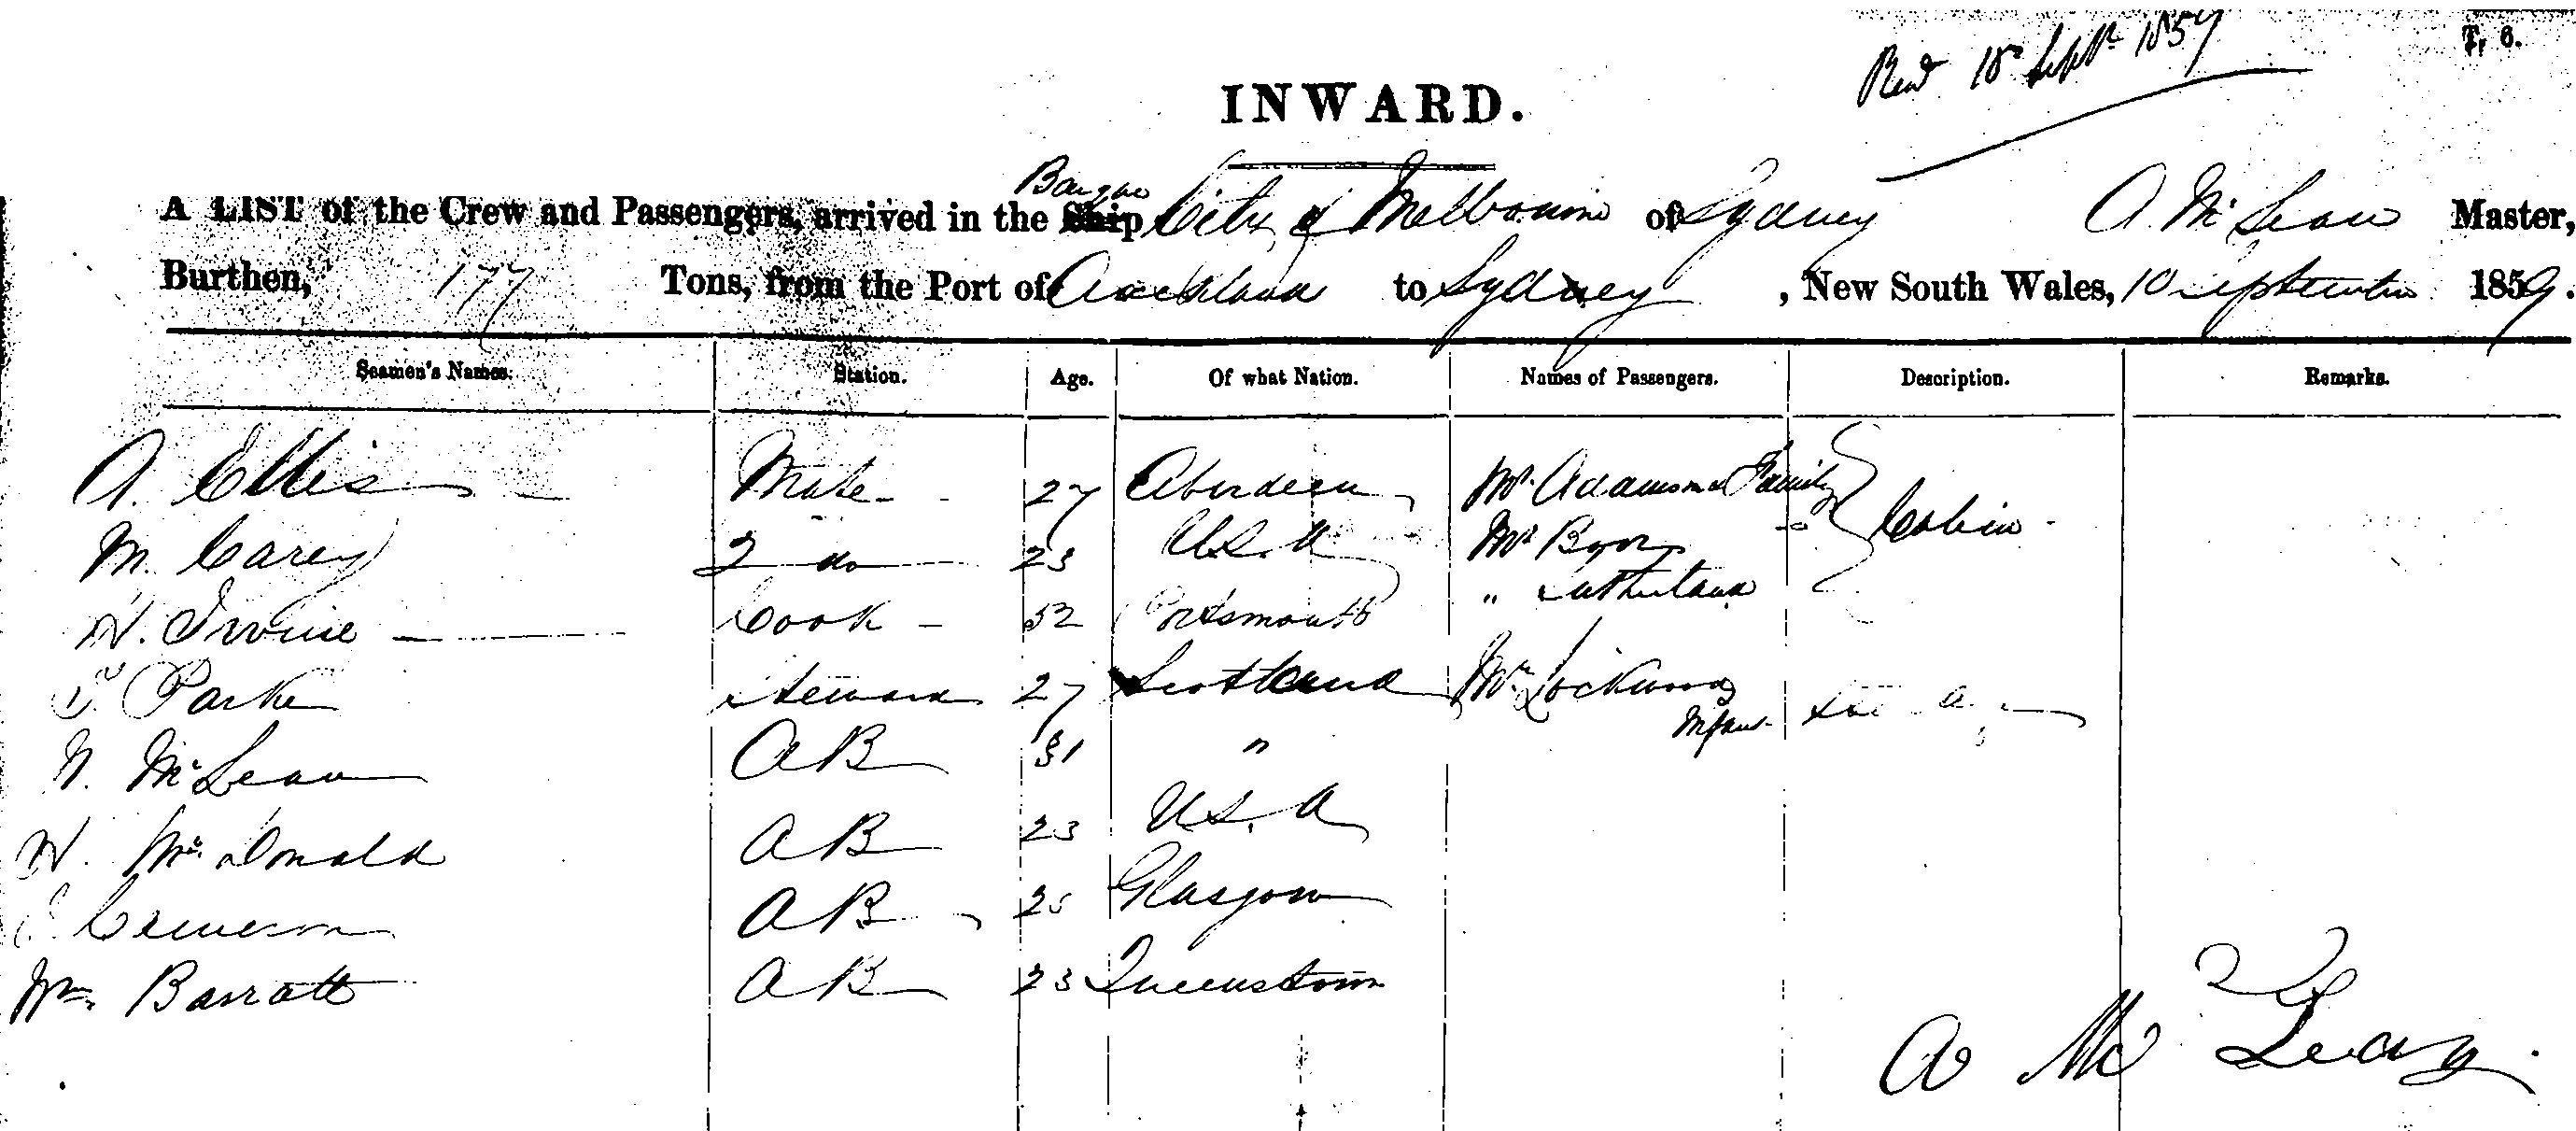 T. 6.
Recd 10 Septr 1859
INWARD.
Barque
A LIST of the Crew and Passengers, arrived in the Ship City of Melbourne of Sydney A. McLean Master,
Burthen, 177 Tons, from the Port of Auckland to Sydney, New South Wales, 10 September 1859.
Seamen's Names. Station. Age. Of what Nation. Names of Passengers. Description. Remarks.
A. Ellis Mate 27 Aberdeen Mr. Adamson & Family Cabin
M. Carey 2 do 23 U.S.A Mr
" Sutherland
H. Irvine Cook 52 Portsmouth
Parke Steward 27 Scotland Mrs Lockwood
Infant
N. McLean AB 31 "
H. McDonald AB 23 U.S.A
Cameron AB 25 Glasgow
Wm Barratt AB 23 Queenstown
A McLean